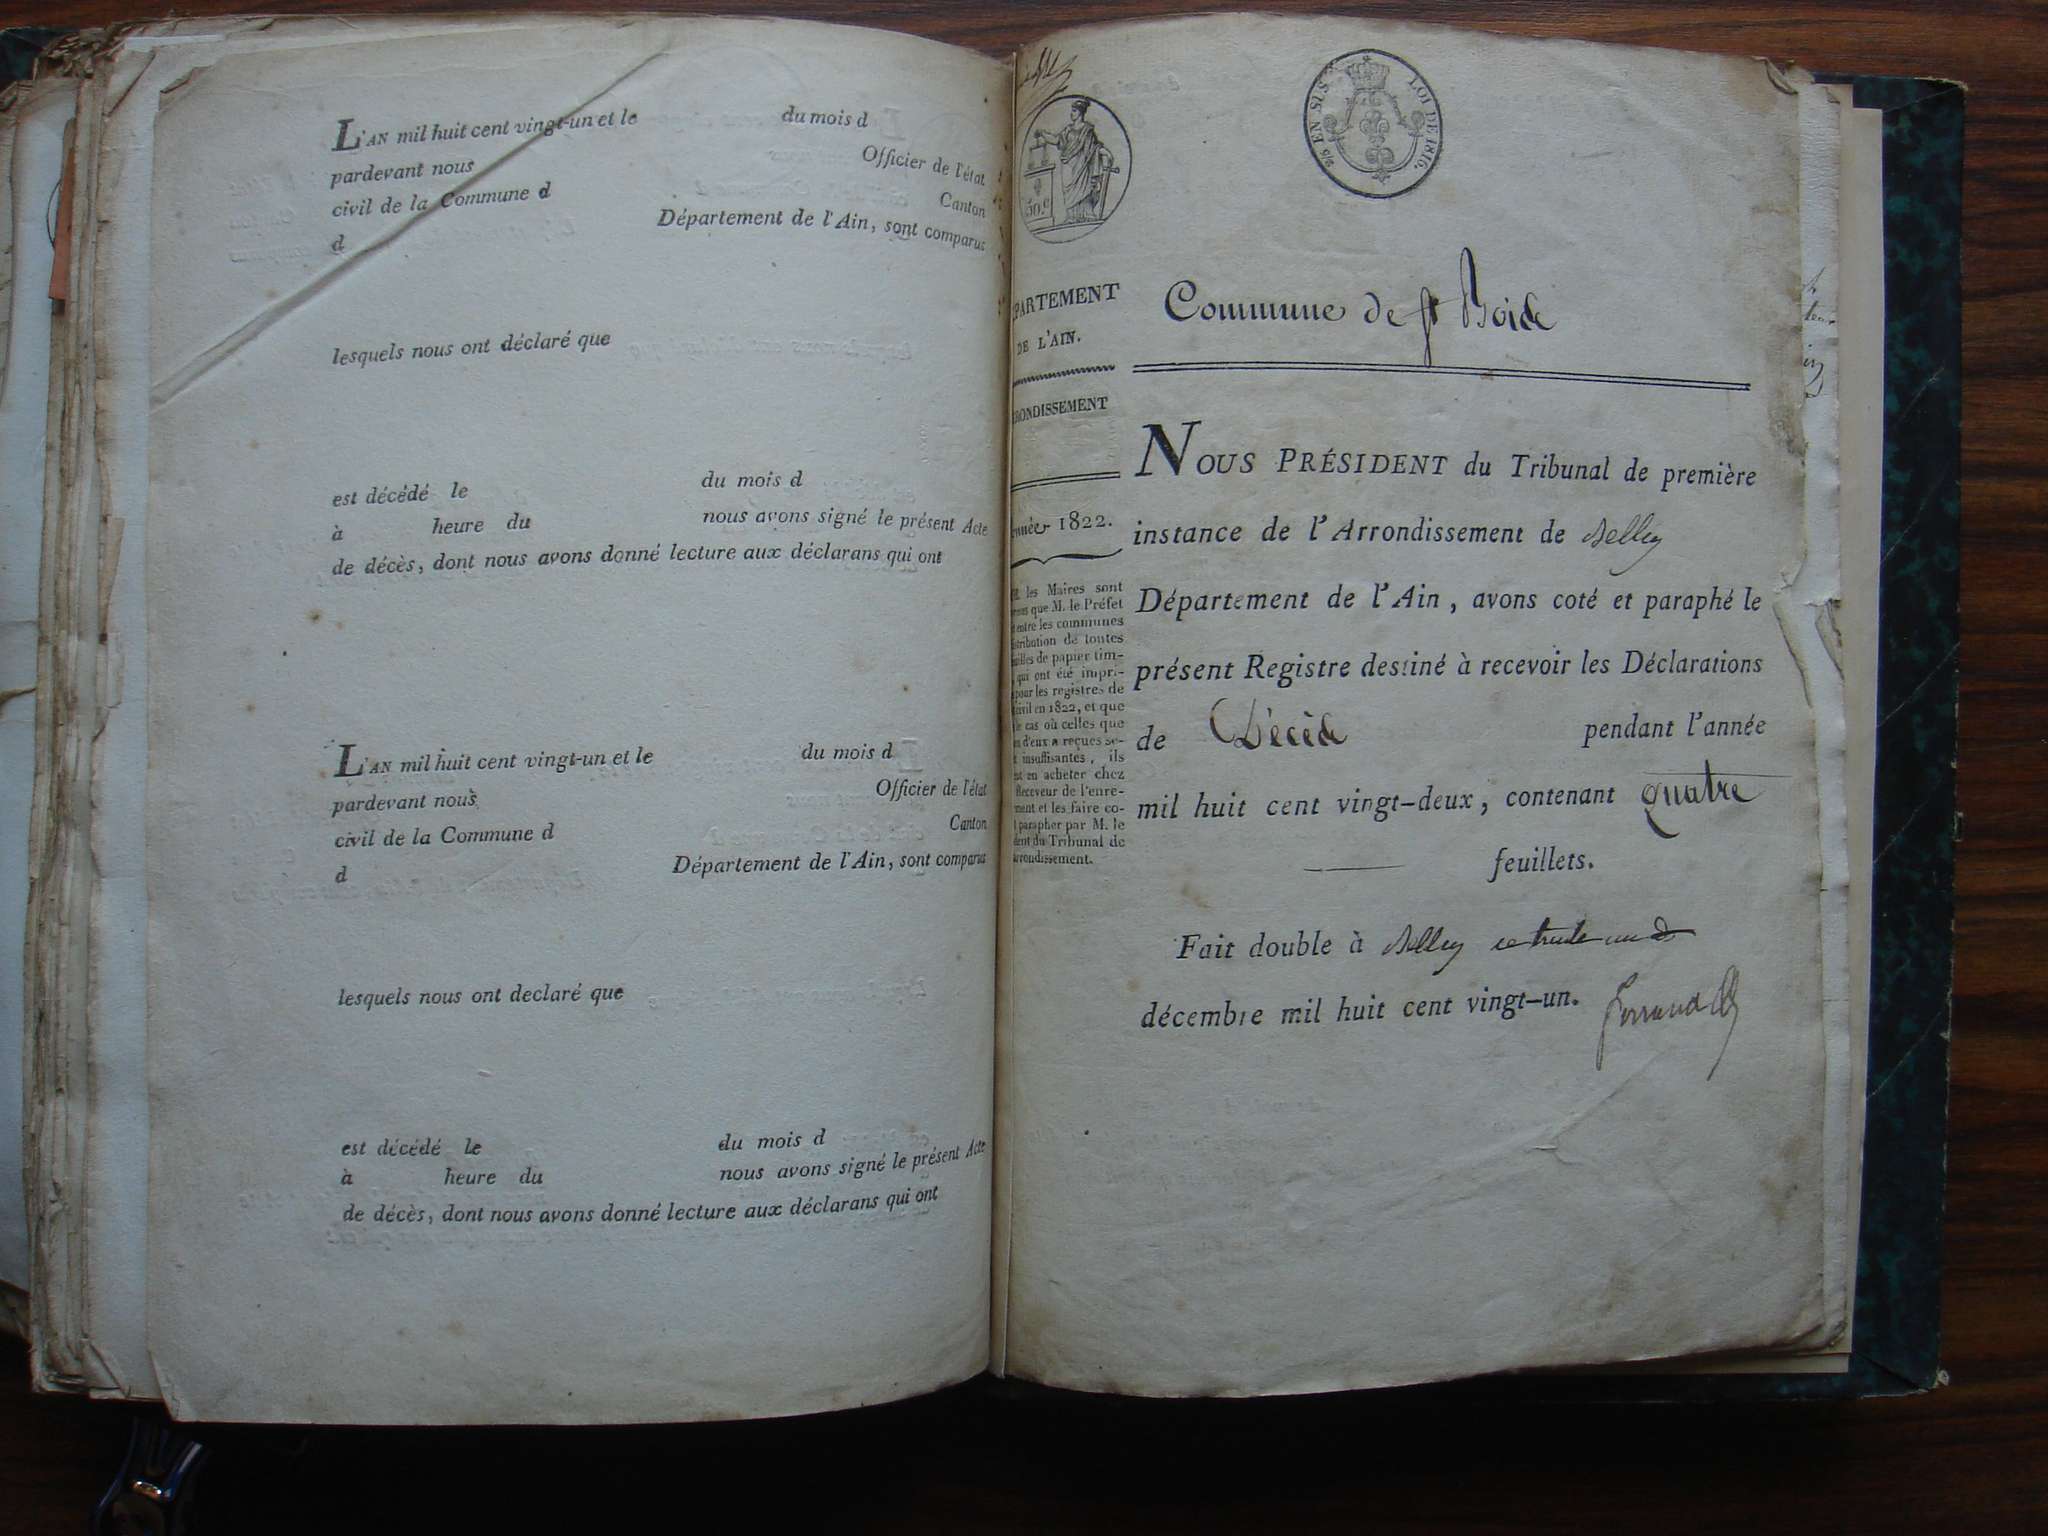 L'AN mil huit cent vingt-un et le du mois d
pardevant nous Officier de l'état
civil de la Commune d Canton
d Département de l'Ain, sont comparus
lesquels nous ont déclaré que
est décédé le du mois d
à heure du nous avons signé le présent Acte
de décès, dont nous avons donné lecture aux déclarans qui ont
L'AN mil huit cent vingt-un et le du mois d
pardevant nous Officier de l'état
civil de la Commune d Canton
d Département de l'Ain, sont comparus
lesquels nous ont declaré que
est décédé le du mois d
à heure du nous avons signé le présent Acte
de décès, dont nous avons donné lecture aux déclarans qui ont
50.c
EN SUS
LOI DE 1816.
PARTEMENT
DE L'AIN.
RONDISSEMENT
nnée 1822.
les Maires sont
que M. le Préfet
entre les communes
tribution de toutes
uilles de papier tim-
qui ont été impri-
pour les registres de
civil en 1822, et que
le cas où celles que
d'eux a reçues se-
t insuffisantes, ils
en acheter chez
Receveur de l'enre-
ment et les faire co-
parapher par M. le
dent du Tribunal de
rrondissement.
Commune de St Boide
NOUS PRÉSIDENT du Tribunal de première
instance de l'Arrondissement de Belley
Département de l'Ain, avons coté et paraphé le
présent Registre destiné à recevoir les Déclarations
de Décès pendant l'année
mil huit cent vingt-deux, contenant quatre
feuillets.
Fait double à Belley ce trente un
décembre mil huit cent vingt-un.